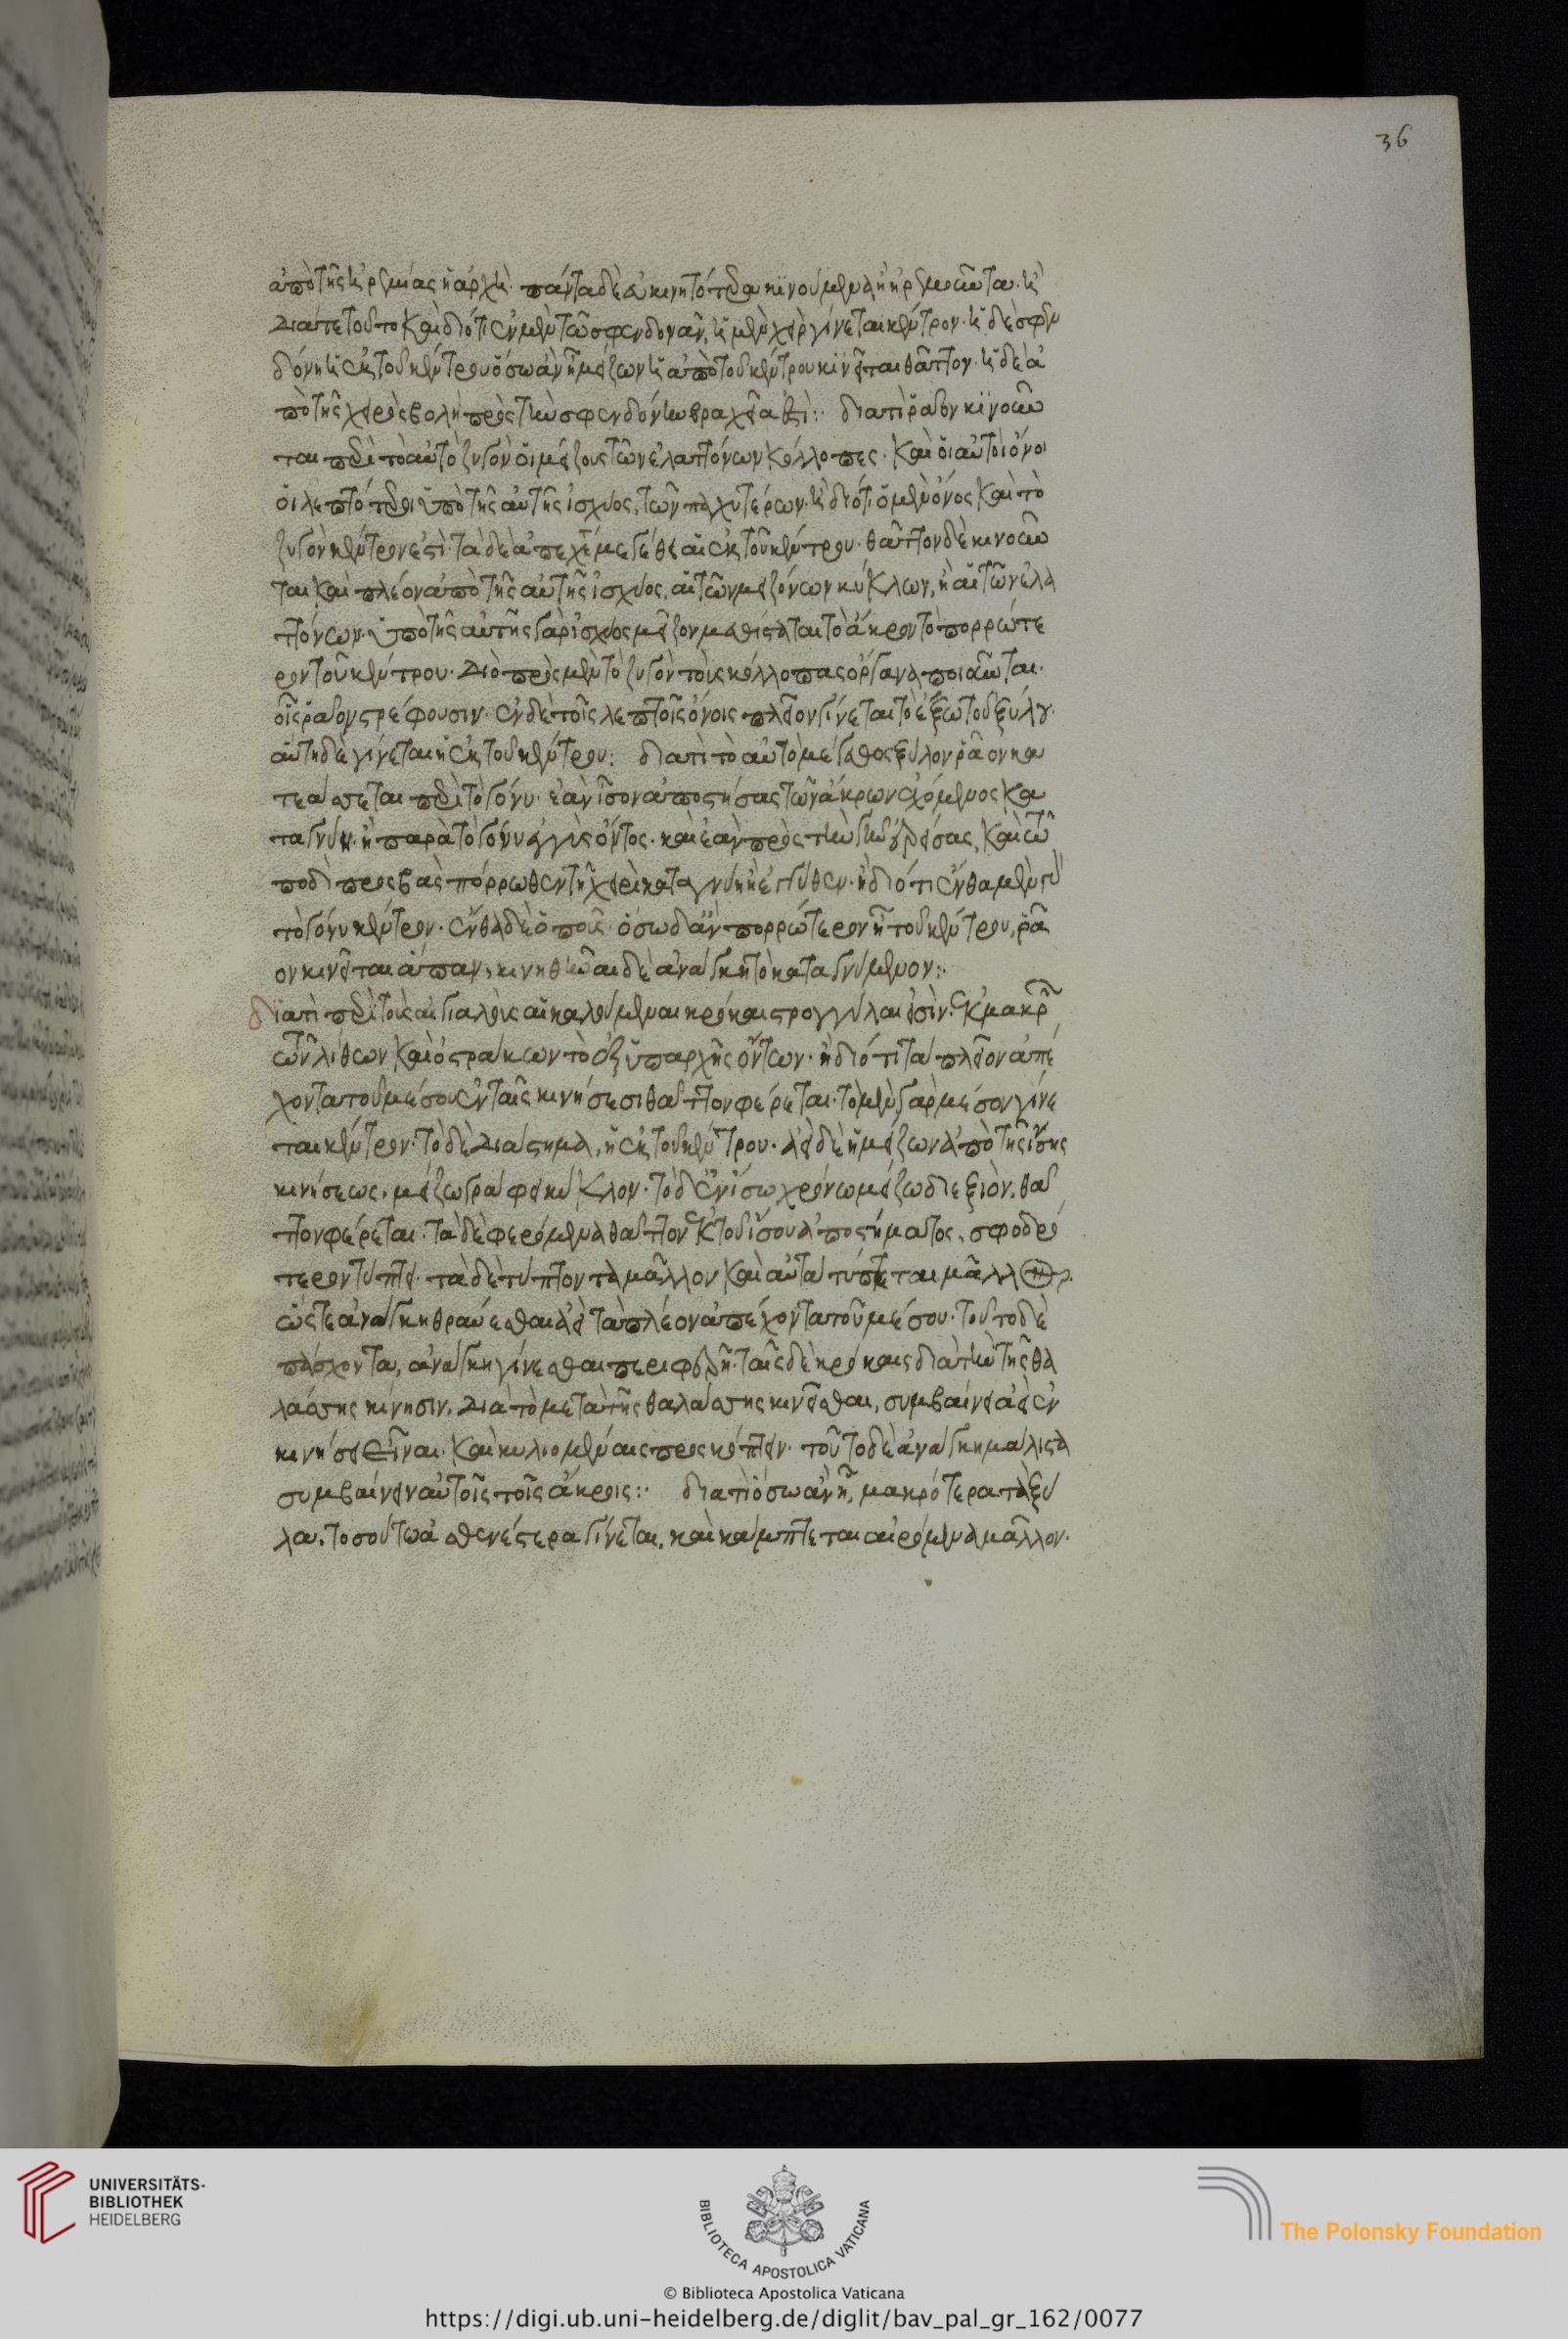 36
ἀπὸ τῆς ἠρεμίας ἡ ἀρχή. πάντα δὲ εὐκινητότερα κινούμενα ἢ ἠρεμοῦντα. ἢ
διά τε τοῦτο καὶ διότι ἐν μὲν τῶ σφενδονᾶν, ἡ μὲν χεὶρ γίνεται κέντρον. ἡ δὲ σφεν
δόνη ἡ ἐκ τοῦ κέντρου ὅσω ἂν ἦ μείζων ἡ ἀπὸ τοῦ κέντρου κινεῖται θᾶττον. ἡ δὲ ἀ
πὸ τῆς χειρὸς βολὴ πρὸς τὴν σφενδόνην βραχεῖα ἐστί: διατί ῥᾶον κινοῦν
ται περὶ τὸ αὐτὸ ζυγὸν οἱ μείζους τῶν ἐλαττόνων κόλλοπες. καὶ οἱ αὐτοὶ ὄνοι
οἱ λεπτότεροι ὑπὸ τῆς αὐτῆς ἰσχύος, τῶν παχυτέρων. ἢ διότι ὁ μὲν ὄνος καὶ τὸ
ζυγὸν κέντρον ἐστί. τὰ δὲ ἀπέχοντα μεγέθει αἱ ἐκ τοῦ κέντρου. θᾶττον δὲ κινοῦν
ται καὶ πλέον ἀπὸ τῆς αὐτῆς ἰσχύος, αἱ τῶν μειζόνων κύκλων, ἢ αἱ τῶν ἐλα
ττόνων. ὑπὸ τῆς αὐτῆς γὰρ ἰσχύος μεῖζον μεθίσταται τὸ ἄκρον τὸ πορρώτε
ρον τοῦ κέντρου. διὸ πρὸς μὲν τὸ ζυγὸν τοὺς κόλλοπας ὄργανα ποιοῦνται.
οἷς ῥᾶον στρέφουσιν. ἐν δὲ τοῖς λεπτοῖς ὄνοις πλεῖον γίνεται τὸ ἔξω τοῦ ξύλου.
αὕτη δὲ γίνεται ἡ ἐκ τοῦ κέντρου: διατί τὸ αὐτὸ μέγεθος ξύλον ῥᾶον κα
τεάσσεται περὶ τὸ γόνυ. ἐὰν ἴσον ἀποστήσας τῶν ἄκρων ἐχόμενος κα
ταγνύη. ἢ παρὰ τὸ γόνυ ἐγγὺς ὄντος. καὶ ἐὰν πρὸς τὴν γῆν ἐρείσας, καὶ τῶ
ποδὶ προσβὰς πόρρωθεν τῇ χειρὶ καταγνύη ἢ ἐγγύθεν. ἢ διότι ἔνθα μὲν
τὸ γόνυ κέντρον. ἔνθα δὲ ὁ ποῦς. ὅσω δ' ἂν πορρώτερον ἦ τοῦ κέντρου, ῥᾶ
ον κινεῖται ἅπαν, κινηθῆναι δὲ ἀνάγκη τὸ καταγνύμενον:
διατί περὶ τοὺς αἰγιαλοὺς αἱ καλούμεναι κρόκαι στρογγύλαι εἰσίν. ἐκ μακρῶν
τῶν λίθων καὶ ὀστράκων τὸ ἐξ ὑπαρχῆς ὄντων. ἢ διότι τὰ πλεῖον ἀπέ
χοντα τοῦ μέσου ἐν ταῖς κινήσεσι θᾶττον φέρεται. τὸ μὲν γὰρ μέσον γίνε
ται κέντρον. τὸ δὲ διάστημα, ἡ ἐκ τοῦ κέντρου. ἀεὶ δὲ ἡ μείζων ἀπὸ τῆς ἴσης
κινήσεως, μείζω γράφει κύκλον. τὸ δ' ἐν ἴσω χρόνω μείζω διεξιὸν, θᾶτ
τον φέρεται. τὰ δὲ φερόμενα θᾶττον ἐκ τοῦ ἴσου ἀποστήματος, σφοδρό
τερον τύπτει. τὰ δὲ τύπτοντα μᾶλλον καὶ αὐτὰ τύπτεται μᾶλλον.
ὥστε ἀνάγκη θραύεσθαι ἀεὶ τὰ πλέον ἀπέχοντα τοῦ μέσου. τοῦτο δὲ
πάσχοντα, ἀνάγκη γίνεσθαι περιφερῆ. ταῖς δὲ κρόκαις διὰ τὴν τῆς θα
λάσσης κίνησιν, διὰ τὸ μετὰ τῆς θαλάσσης κινεῖσθαι, συμβαίνει ἀεὶ ἐν
κινήσει εἶναι. καὶ κυλιομέναις προσκόπτειν. τοῦτο δὲ ἀνάγκη μάλιστα
συμβαίνειν αὐτοῖς τοῖς ἄκροις: διατί ὅσω ἂν ἦ, μακρότερα τὰ ξύ
λα, τοσούτω ἀσθενέστερα γίνεται, καὶ κάμπτεται αἱρόμενα μᾶλλον.
UNIVERSITÄTS-
BIBLIOTHEK
HEIDELBERG
BIBLIOTECA APOSTOLICA VATICANA
The Polonsky Foundation
© Biblioteca Apostolica Vaticana
https://digi.ub.uni-heidelberg.de/diglit/bav_pal_gr_162/0077